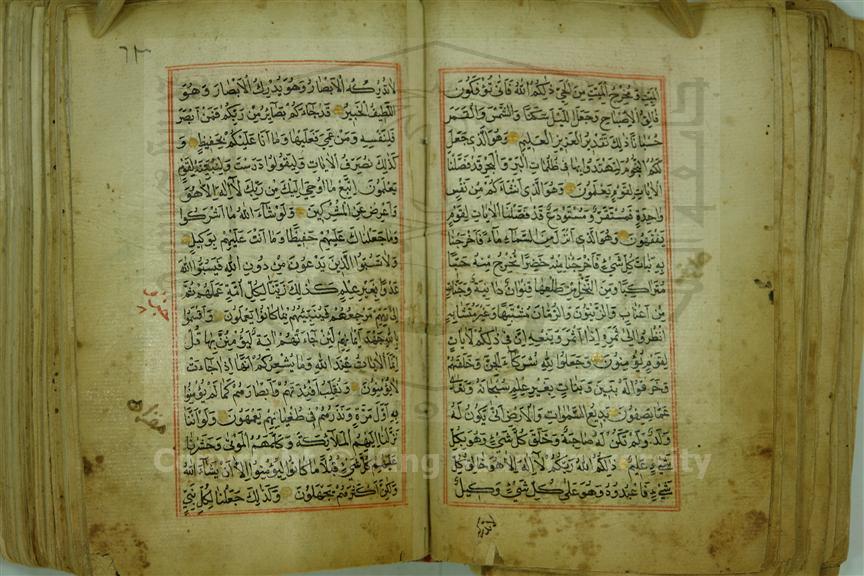 الميت ومخرج الميت من الحي ذلكم الله فاني تؤفكون
فالق الاصباح وجعل الليل سكنا والشمس والقمر
حسبانا ذلك تقدير العزيز العليم وهو الذي جعل
لكم النجوم لتهتدوا بها في ظلمات البر والبحر قد فصلنا
الايات لقوم يعلمون وهو الذي انشاءكم من نفس
واحدة فمستقر ومستودع قد فصلنا الايات لقوم
يفقهون وهو الذي انزل من السماء ماء فاخرجنا
به نبات كل شيء فاخرجنا منه خضرا نخرج منه حبا
متراكبا ومن النخل من طلعها قنوان دانية وجنات
من اعناب والزيتون والرمان مشتبها وغير متشابه
انظروا الى ثمره اذا اثمر وينعه ان في ذلكم لايات
لقوم يؤمنون وجعلوا لله شركاء الجن وخلقهم
وخرقوا له بنين وبنات بغير علم سبحانه وتعالى
عما يصفون بديع السموات والارض انى يكون له
ولد ولم تكن له صاحبة وخلق كل شيء وهو بكل
شيء عليم ذلكم الله ربكم لا اله الا هو خالق كل
شيء فاعبدوه وهو على كل شيء وكيل
لا تدركه
لا تدركه الابصار وهو يدرك الابصار وهو
اللطيف الخبير قد جاءكم بصاير من ربكم فمن ابصر
فلنفسه ومن عمي فعليها وما انا عليكم بحفيظ و
كذلك نصرف الايات وليقولوا درست ولنبينه لقوم
يعلمون اتبع ما اوحي اليك من ربك لا اله الا هو
واعرض عن المشركين ولو شاء الله ما اشركوا
وما جعلناك عليهم حفيظا وما انت عليهم بوكيل
ولا تسبوا الذين يدعون من دون الله فيسبوا الله
عدوا بغير علم كذلك زينا لكل امة عملهم ثم
الى ربهم مرجعهم فينبئهم بما كانوا يعملون واقسموا
بالله جهد ايمانهم لئن جاءتهم اية ليؤمنن بها قل
انما الايات عند الله وما يشعركم انها اذا جاءت
لا يؤمنون ونقلب افئدتهم وابصارهم كما لم يؤمنوا
به اول مرة ونذرهم في طغيانهم يعمهون ولو اننا
نزلنا اليهم الملائكة وكلمهم الموتى وحشرنا
عليهم كل شيء قبلا ما كانوا ليؤمنوا الا ان يشاء الله
ولكن اكثرهم يجهلون وكذلك جعلنا لكل نبي